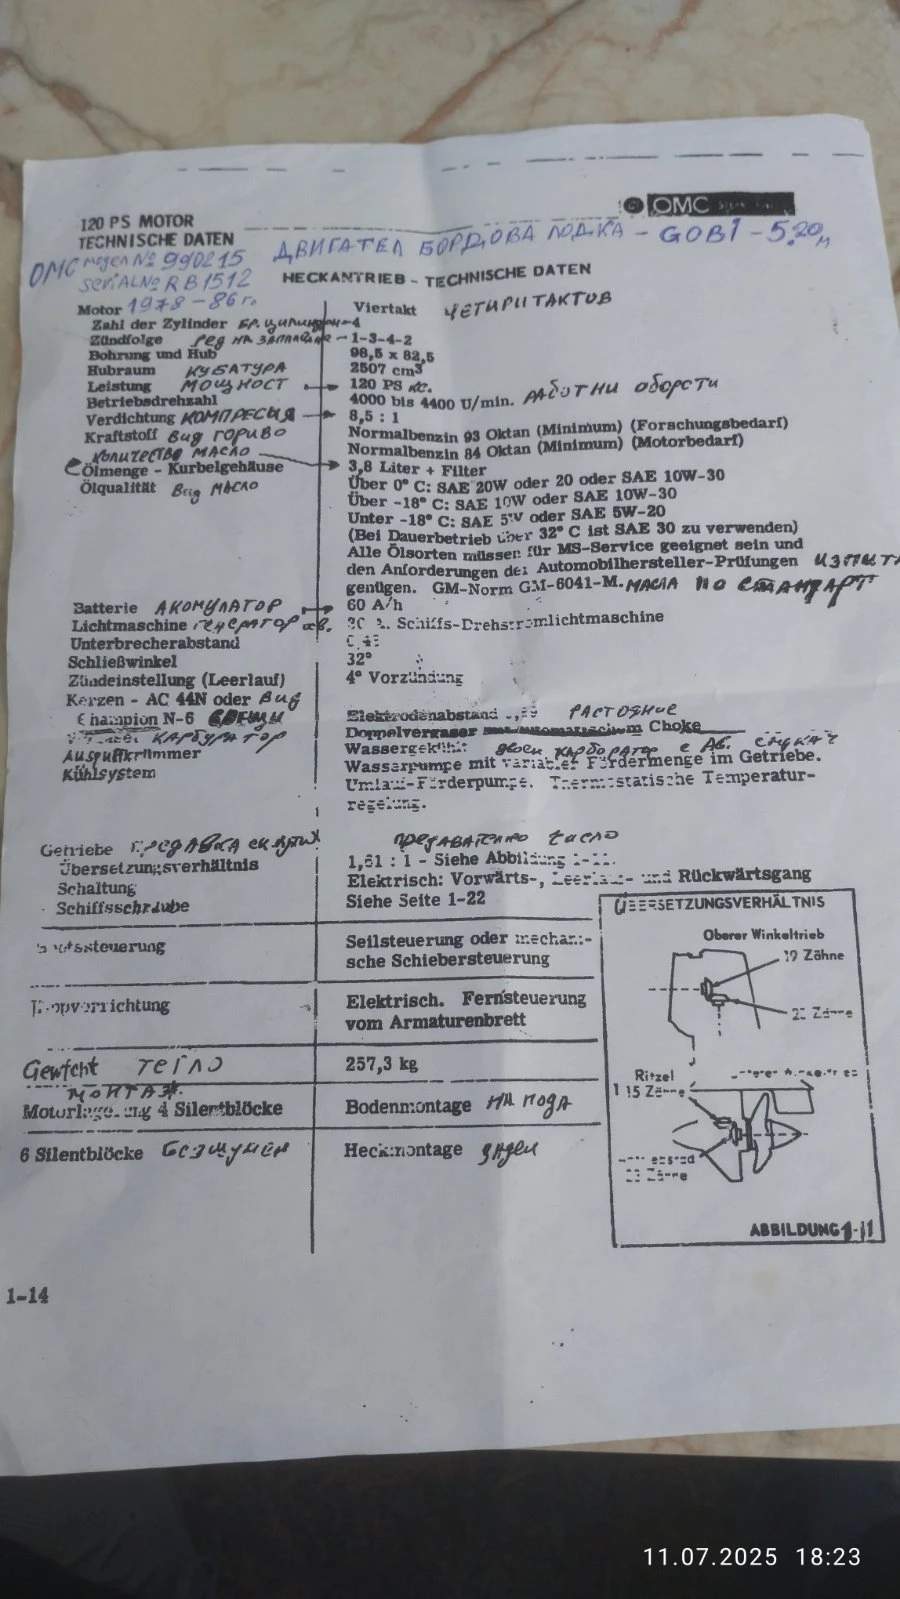 120 PS MOTOR
TECHNISCHE DATEN
OMC
ДВИГАТЕЛ БОРДОВА ЛОДКА - GOBI - 5.20 м
OMC модел № 990215
SERIAL № RB1512
1978-86 г.
HECKANTRIEB - TECHNISCHE DATEN
Motor Viertakt ЧЕТИРИТАКТОВ
Zahl der Zylinder БР. 4
Zündfolge РЕД НА 1-3-4-2
Bohrung und Hub 98,5 x 82,5
Hubraum КУБАТУРА 2507 cm³
Leistung МОЩНОСТ 120 PS кс.
Betriebsdrehzahl 4000 bis 4400 U/min. РАБОТНИ обороти
Verdichtung КОМПРЕСИЯ 8,5 : 1
Kraftstoff ВИД ГОРИВО Normalbenzin 93 Oktan (Minimum) (Forschungsbedarf)
Normalbenzin 84 Oktan (Minimum) (Motorbedarf)
количество МАСЛО
Ölmenge - Kurbelgehäuse 3,8 Liter + Filter
Ölqualität Вид МАСЛО Über 0° C: SAE 20W oder 20 oder SAE 10W-30
Über -18° C: SAE 10W oder SAE 10W-30
Unter -18° C: SAE 5W oder SAE 5W-20
(Bei Dauerbetrieb über 32° C ist SAE 30 zu verwenden)
Alle Ölsorten müssen für MS-Service geeignet sein und
den Anforderungen der Automobilhersteller-Prüfungen
genügen. GM-Norm GM-6041-M. МАСЛА ПО СТАНДАРТ
Batterie АКОМУЛАТОР 60 A/h
Lichtmaschine ГЕНЕРАТОР Schiffs-Drehstromlichtmaschine
Unterbrecherabstand
Schließwinkel 32°
Zündeinstellung (Leerlauf) 4° Vorzündung
Kerzen - AC 44N oder Вид
Champion N-6 СВЕЩИ Elektrodenabstand РАСТОЯНИЕ
КАРБУРАТОР Doppelvergaser Choke
Auspuffkrümmer Wassergekühlt двоен карборатор с АВ.
Kühlsystem Wasserpumpe mit variabler Fördermenge im Getriebe.
Umlauf-Förderpumpe. Thermostatische Temperatur-
regelung.
Getriebe ПРЕДАВКА ПРЕДАВАТЕЛНО ЧИСЛО
Übersetzungsverhältnis 1,61 : 1 - Siehe Abbildung 1-11.
Schaltung Elektrisch: Vorwärts-, Leerlauf- und Rückwärtsgang
Schiffsschraube Siehe Seite 1-22
Bootssteuerung Seilsteuerung oder mechani-
sche Schiebersteuerung
Kippvorrichtung Elektrisch. Fernsteuerung
vom Armaturenbrett
Gewicht тегло 257,3 kg
МОНТАЖ
Motorlagerung 4 Silentblöcke Bodenmontage НА ПОДА
6 Silentblöcke Безшумен Heckmontage заден
ÜBERSETZUNGSVERHÄLTNIS
Oberer Winkeltrieb
19 Zähne
Zähne
Ritzel
15 Zähne
Zähne
ABBILDUNG 1-11
1-14
11.07.2025 18:23